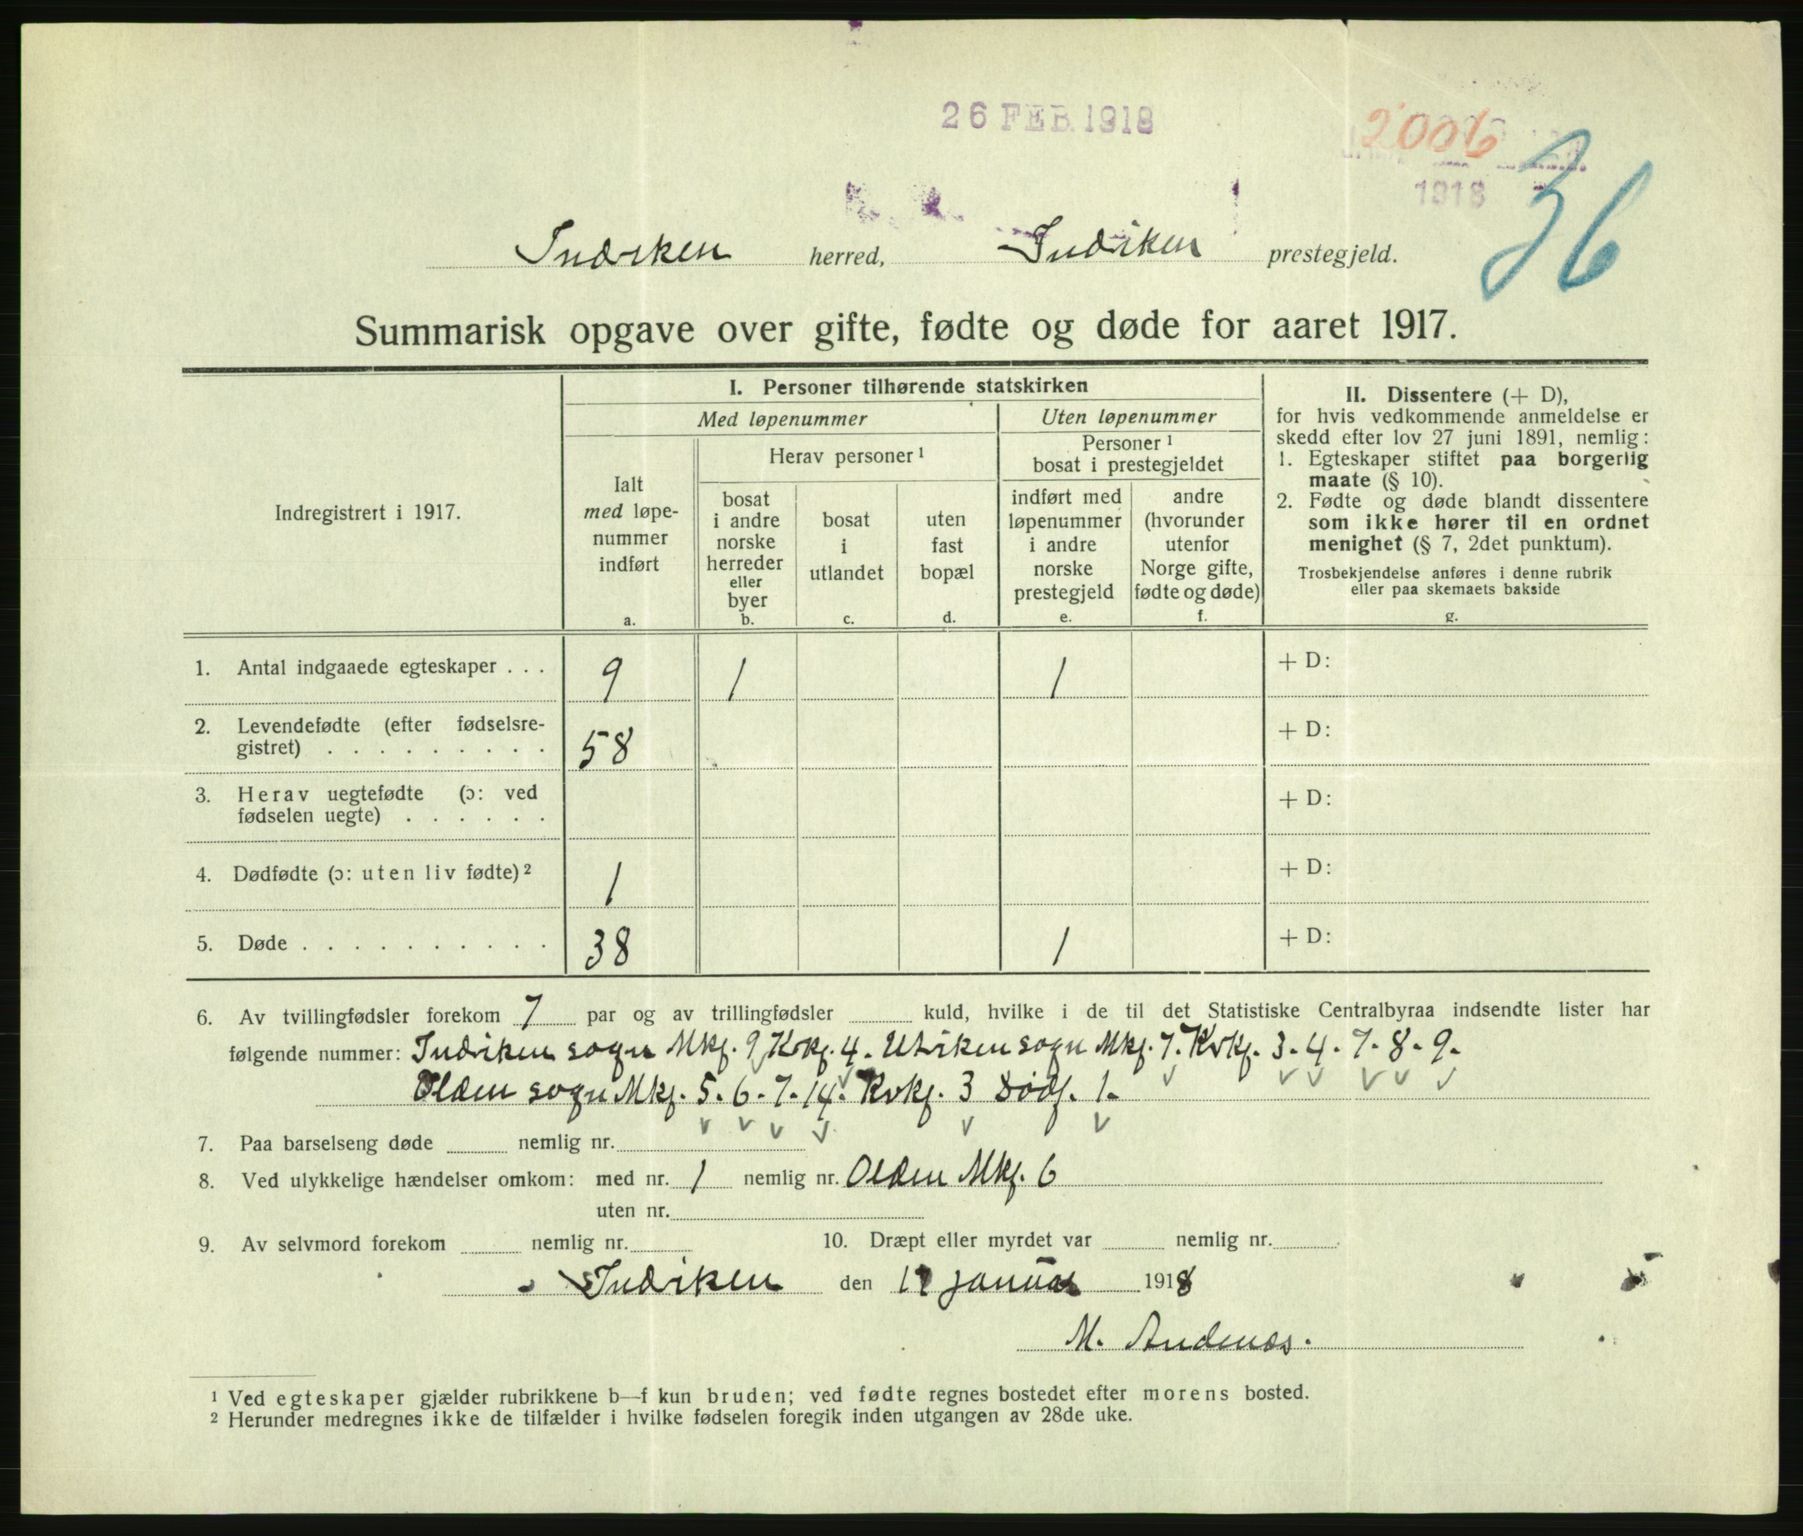 26 FEB. 1918
2006
1918
36
Indviken herred, Indviken prestegjeld.
Summarisk opgave over gifte, fødte og døde for aaret 1917.
Indregistrert i 1917.
I. Personer tilhørende statskirken
Med løpenummer
Uten løpenummer
Ialt
med løpe-
nummer
indført
a.
Herav personer ¹
bosat
i andre
norske
herreder
eller
byer
b.
bosat
i
utlandet
c.
uten
fast
bopæl
d.
Personer ¹
bosat i prestegjeldet
indført med
løpenummer
i andre
norske
prestegjeld
e.
andre
(hvorunder
utenfor
Norge gifte,
fødte og døde)
f.
II. Dissentere (+ D),
for hvis vedkommende anmeldelse er
skedd efter lov 27 juni 1891, nemlig:
1. Egteskaper stiftet paa borgerlig
maate (§ 10).
2. Fødte og døde blandt dissentere
som ikke hører til en ordnet
menighet (§ 7, 2det punktum).
Trosbekjendelse anføres i denne rubrik
eller paa skemaets bakside
g.
1. Antal indgaaede egteskaper . . . 9 1 1 + D:
2. Levendefødte (efter fødselsre-
gistret) . . . . . . . . . 58 + D:
3. Herav uegtefødte (ɔ: ved
fødselen uegte) . . . . . . + D:
4. Dødfødte (ɔ: uten liv fødte) ² 1 + D:
5. Døde . . . . . . . . . . 38 1 + D:
6. Av tvillingfødsler forekom 7 par og av trillingfødsler kuld, hvilke i de til det Statistiske Centralbyraa indsendte lister har
følgende nummer: Indviken sogn Mkj. 9, Kvkj. 4. Utviken sogn Mkj. 7. Kvkj. 3. 4. 7. 8. 9.
Olden sogn Mkj. 5. 6. 7. 14. Kvkj. 3 Dødf. 1.
7. Paa barselseng døde nemlig nr.
8. Ved ulykkelige hændelser omkom: med nr. 1 nemlig nr. Olden Mkj. 6
uten nr.
9. Av selvmord forekom nemlig nr. 10. Dræpt eller myrdet var nemlig nr.
Indviken den januar 1918
M. Andenæs.
¹ Ved egteskaper gjælder rubrikkene b—f kun bruden; ved fødte regnes bostedet efter morens bosted.
² Herunder medregnes ikke de tilfælder i hvilke fødselen foregik inden utgangen av 28de uke.